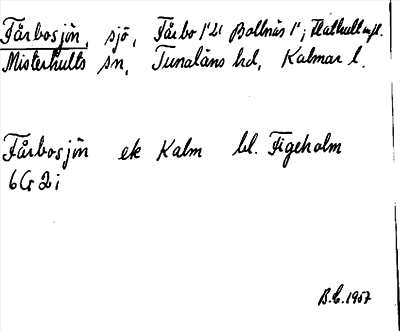 Fårbosjön, sjö, Fårbo 1²¹ Bollnäs 1¹; Hathult mfl.
Misterhults sn, Tunaläns hd, Kalmar l.
Fårbosjön ek Kalm bl. Figeholm
6G2i
B.E. 1957